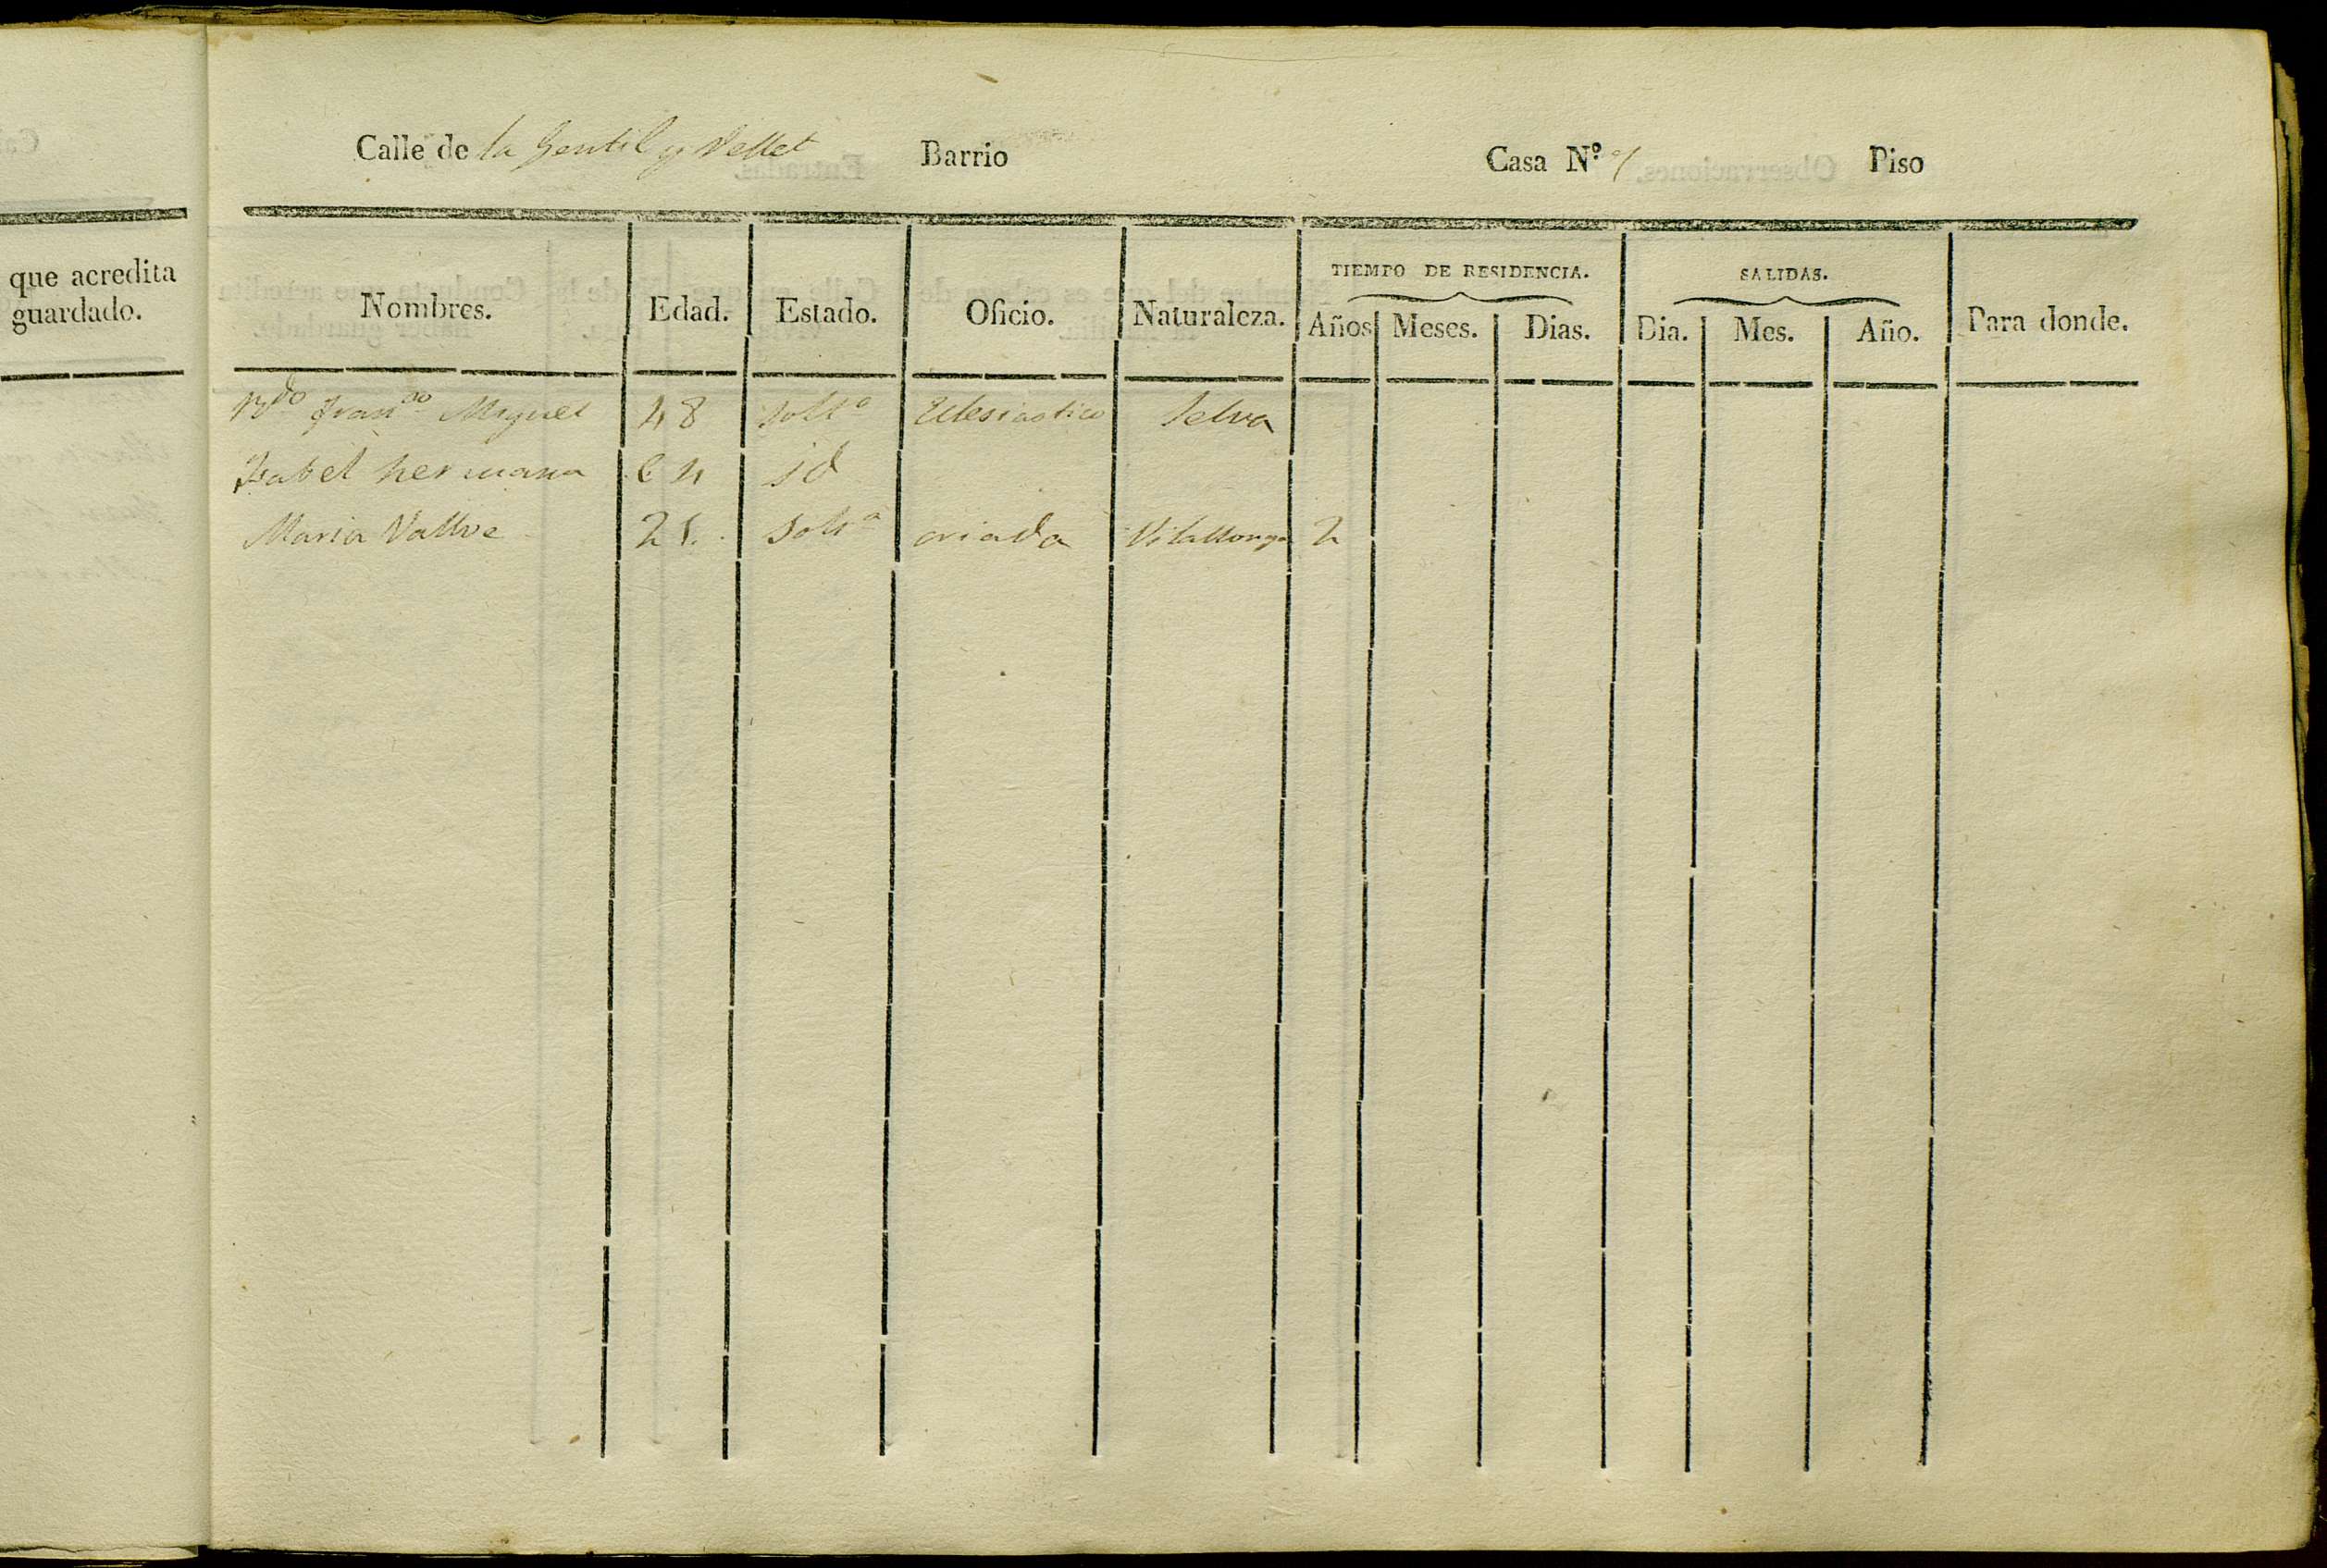 que acredita
guardado.
Calle de la Gentil y Vellet Barrio Casa Nº Piso
Nombres. Edad. Estado. Oficio. Naturaleza. TIEMPO DE RESIDENCIA. SALIDAS. Para donde.
Años Meses. Dias. Dia. Mes. Año.
Rdo Franco Miguel 48 Soltº Eclesiastico Selva
Isabel hermana 64 id
Maria Vallve 25. Soltª criada Vilallonga 2